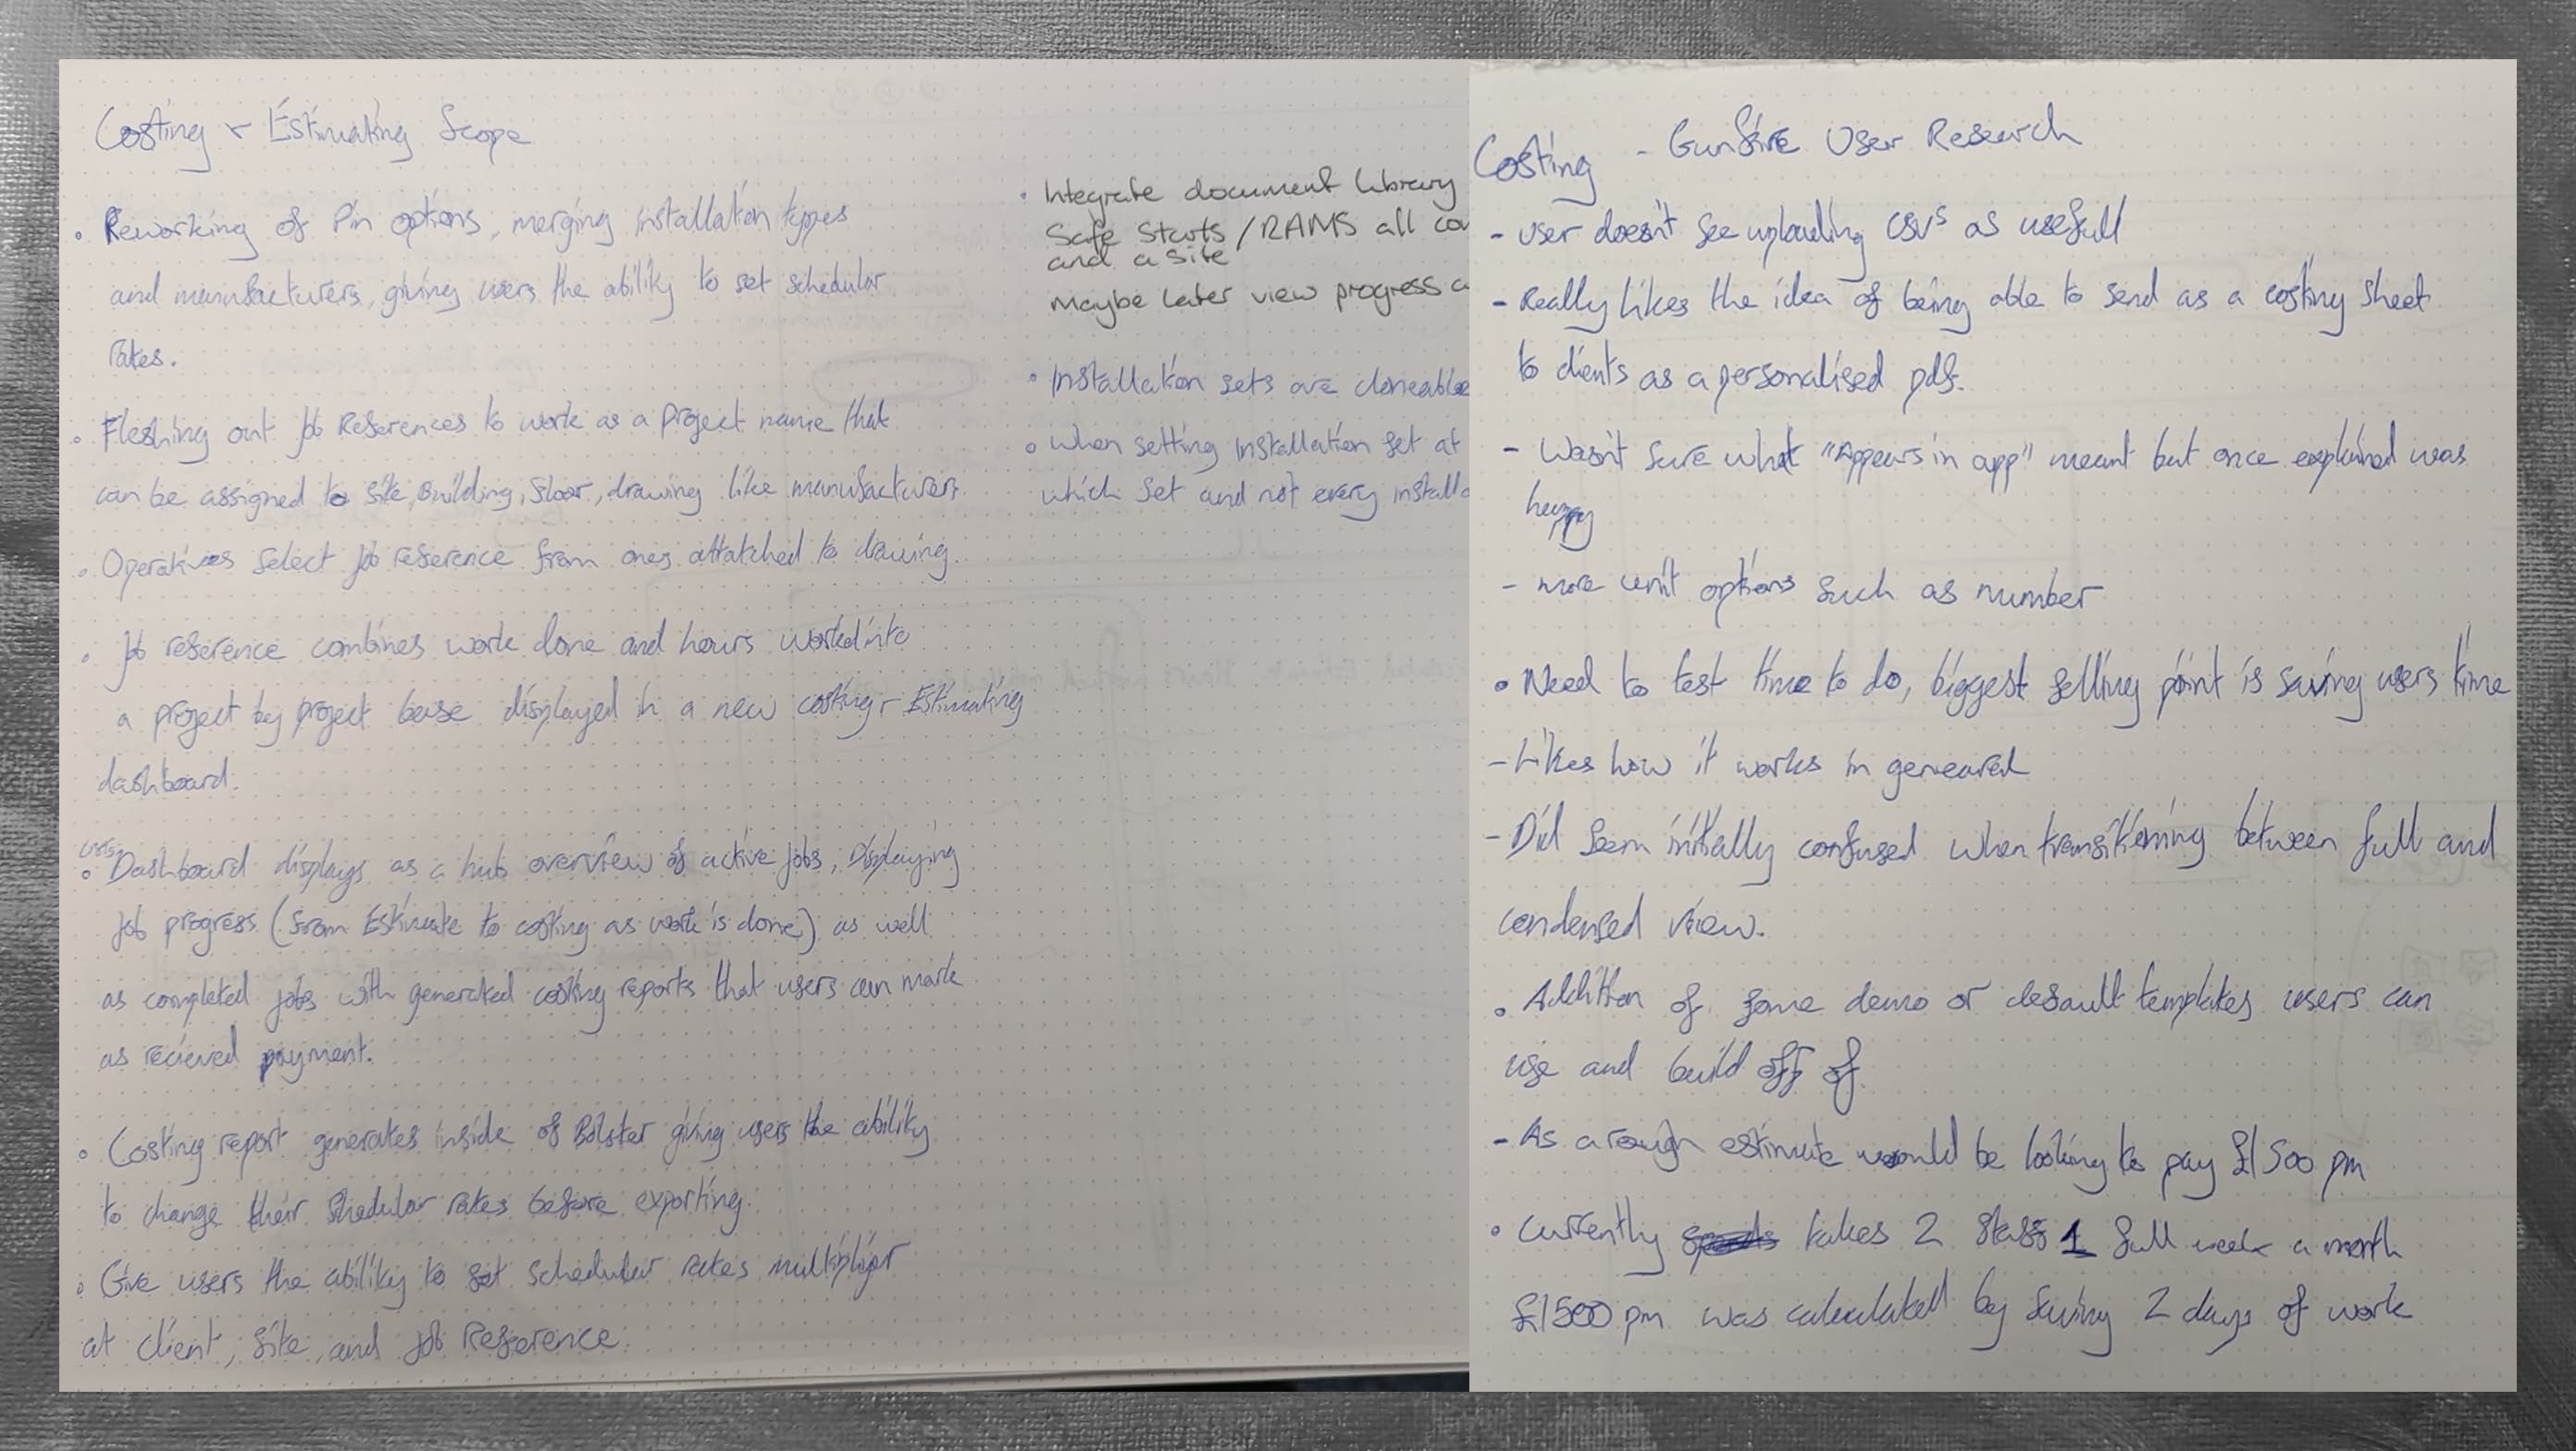 Costing + Estimating Scope
• Reworking of Pin options, merging installation types
and manufacturers, giving users the ability to set schedular
rates.
• Fleshing out Job References to work as a project name that
can be assigned to site, building, floor, drawing like manufacturers.
• Operatives select job reference from ones attatched to drawing.
• Job reference combines work done and hours worked into
a project by project base displayed in a new costing + Estimating
dashboard.
• Dashboard displays as a hub overview of active jobs, Displaying
Job progress (from Estimate to costing as work is done) as well
as completed jobs with generated costing reports that users can mark
as recieved payment.
• Costing report generates inside of Bolster giving users the ability
to change their Shedular rates before exporting.
• Give users the ability to set schedular rates multiplier
at client, site, and job Reference.
• Integrate document library
Safe Starts / RAMS all
and a site
maybe later view progress
• Installation sets are cloneable
• When setting installation set at
which set and not every
Costing - Gunfire User Research
- User doesn't see uploading CSVs as usefull
- Really likes the idea of being able to send as a costing sheet
to clients as a personalised pdf.
- Wasn't sure what "Appears in app" meant but once explained was
happy
- more unit options such as number
• Need to test time to do, biggest selling point is saving users time
- Likes how it works in genearal
- Did seem initially confused when transitioning between full and
condensed view.
• Addition of some demo or default templates users can
use and build off of.
- As a rough estimate would be looking to pay £1500 pm
• Currently takes 2 staff 1 full week a month
£1500 pm was calculated by saving 2 days of work